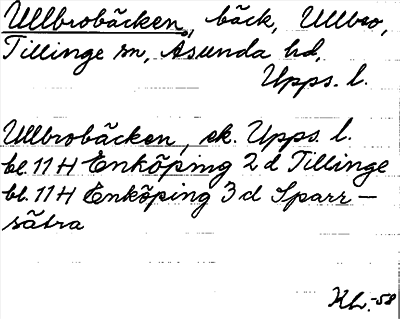 Ullbrobäcken, bäck, Ullbro,
Tillinge sn, Åsunda hd,
Upps. l.
Ullbrobäcken, ek. Upps. l.
bl. 11 H Enköping 2 d Tillinge
bl. 11 H Enköping 3 d Sparr-
sätra
Kh. -58